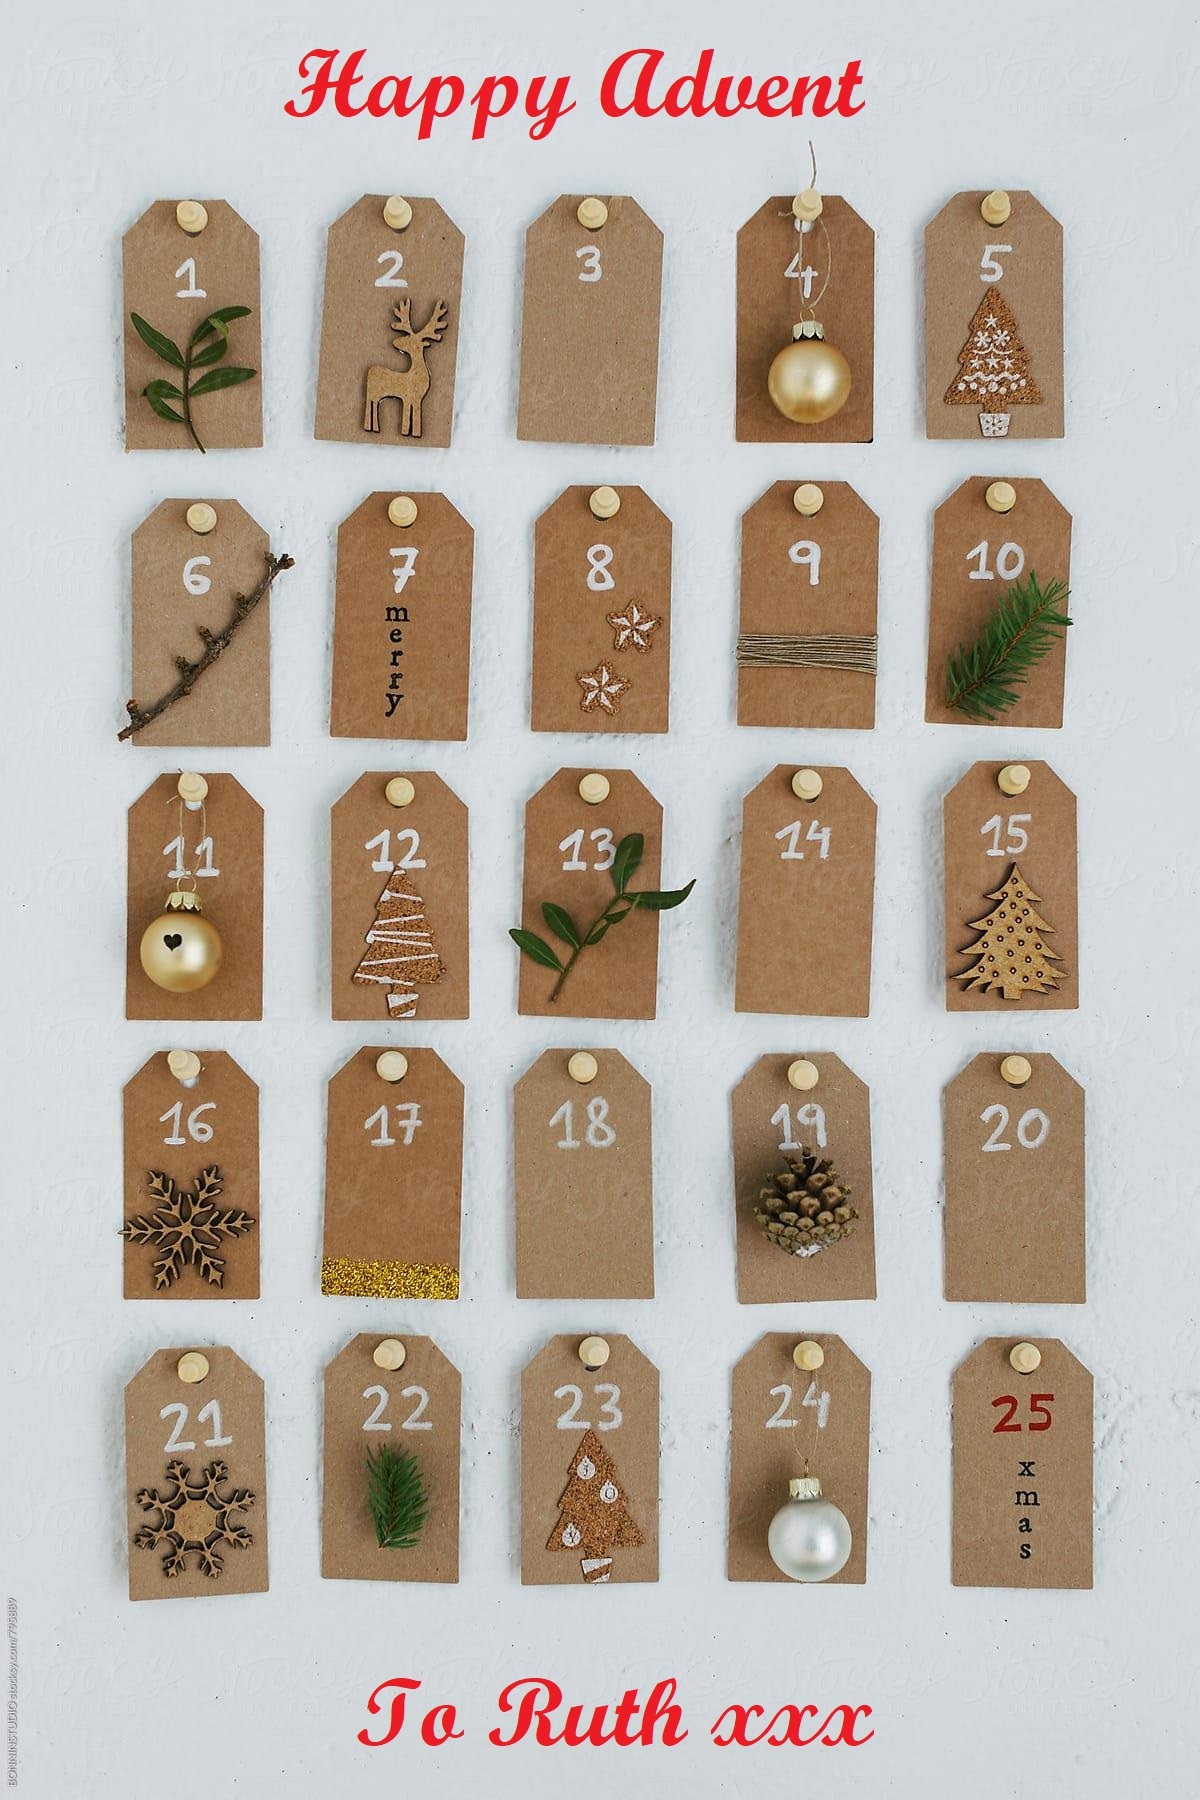 Happy Advent
1 2 3 4 5
6 7 8 9 10
merry
11 12 13 14 15
16 17 18 19 20
21 22 23 24 25
J
O
Y
xmas
To Ruth xxx
BONNINSTUDIO stocksy.com/795889